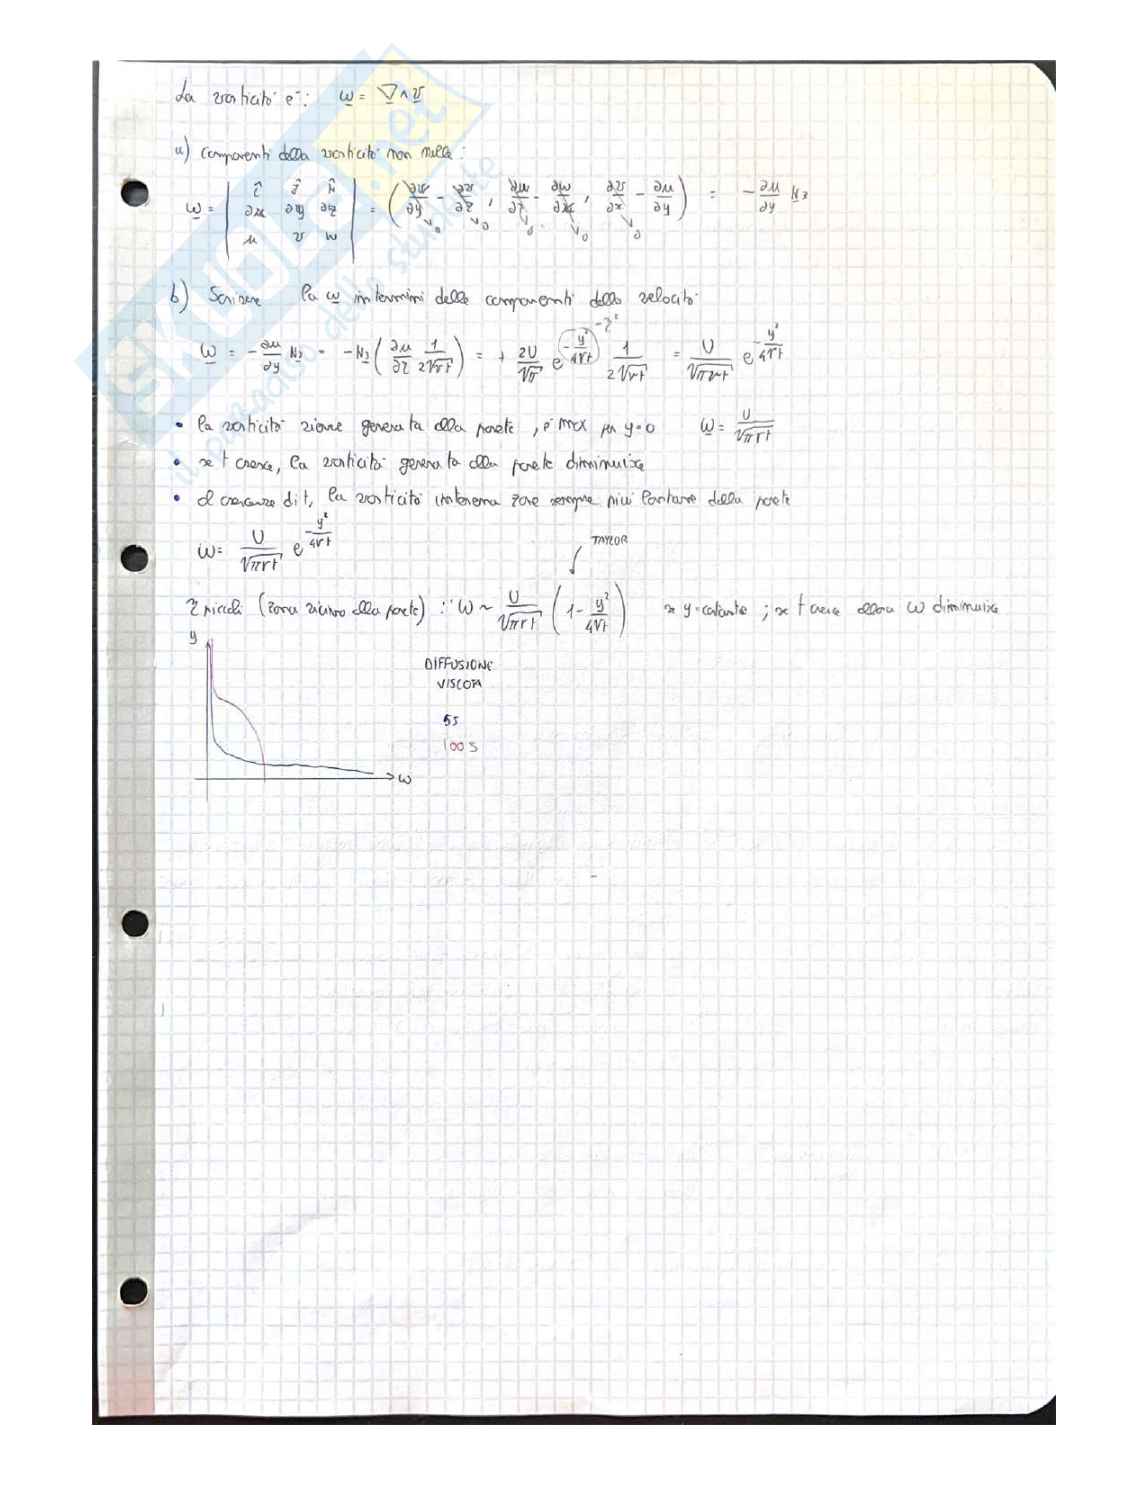 La vorticità è: ω = ∇ ∧ v
a) componenti della vorticità non nulle:
ω = | î ĵ k̂ ; ∂x ∂y ∂z ; u v w | = (∂w/∂y - ∂v/∂z, ∂u/∂z - ∂w/∂x, ∂v/∂x - ∂u/∂y) = - ∂u/∂y
0 0 0 0 0
b) Scrivere la ω in termini delle componenti della velocità
ω = - ∂u/∂y = - (∂u/∂η 1/2√νt) = + 2U/√π e^(-y²/4νt) 1/2√νt = U/√πνt e^(-y²/4νt)
-η²
• la vorticità viene generata alla parete, è max per y=0 ω = U/√πνt
• se t cresce, la vorticità generata alla parete diminuisce
• al crescere di t, la vorticità interessa zone sempre più lontane dalla parete
ω = U/√πνt e^(-y²/4νt)
TAYLOR
η piccoli (zona vicino alla parete): ω ~ U/√πνt (1 - y²/4νt) se y=costante; se t cresce allora ω diminuisce
y
DIFFUSIONE
VISCOSA
5s
100 s
ω
SKUOLA.net
il paradiso dello studente